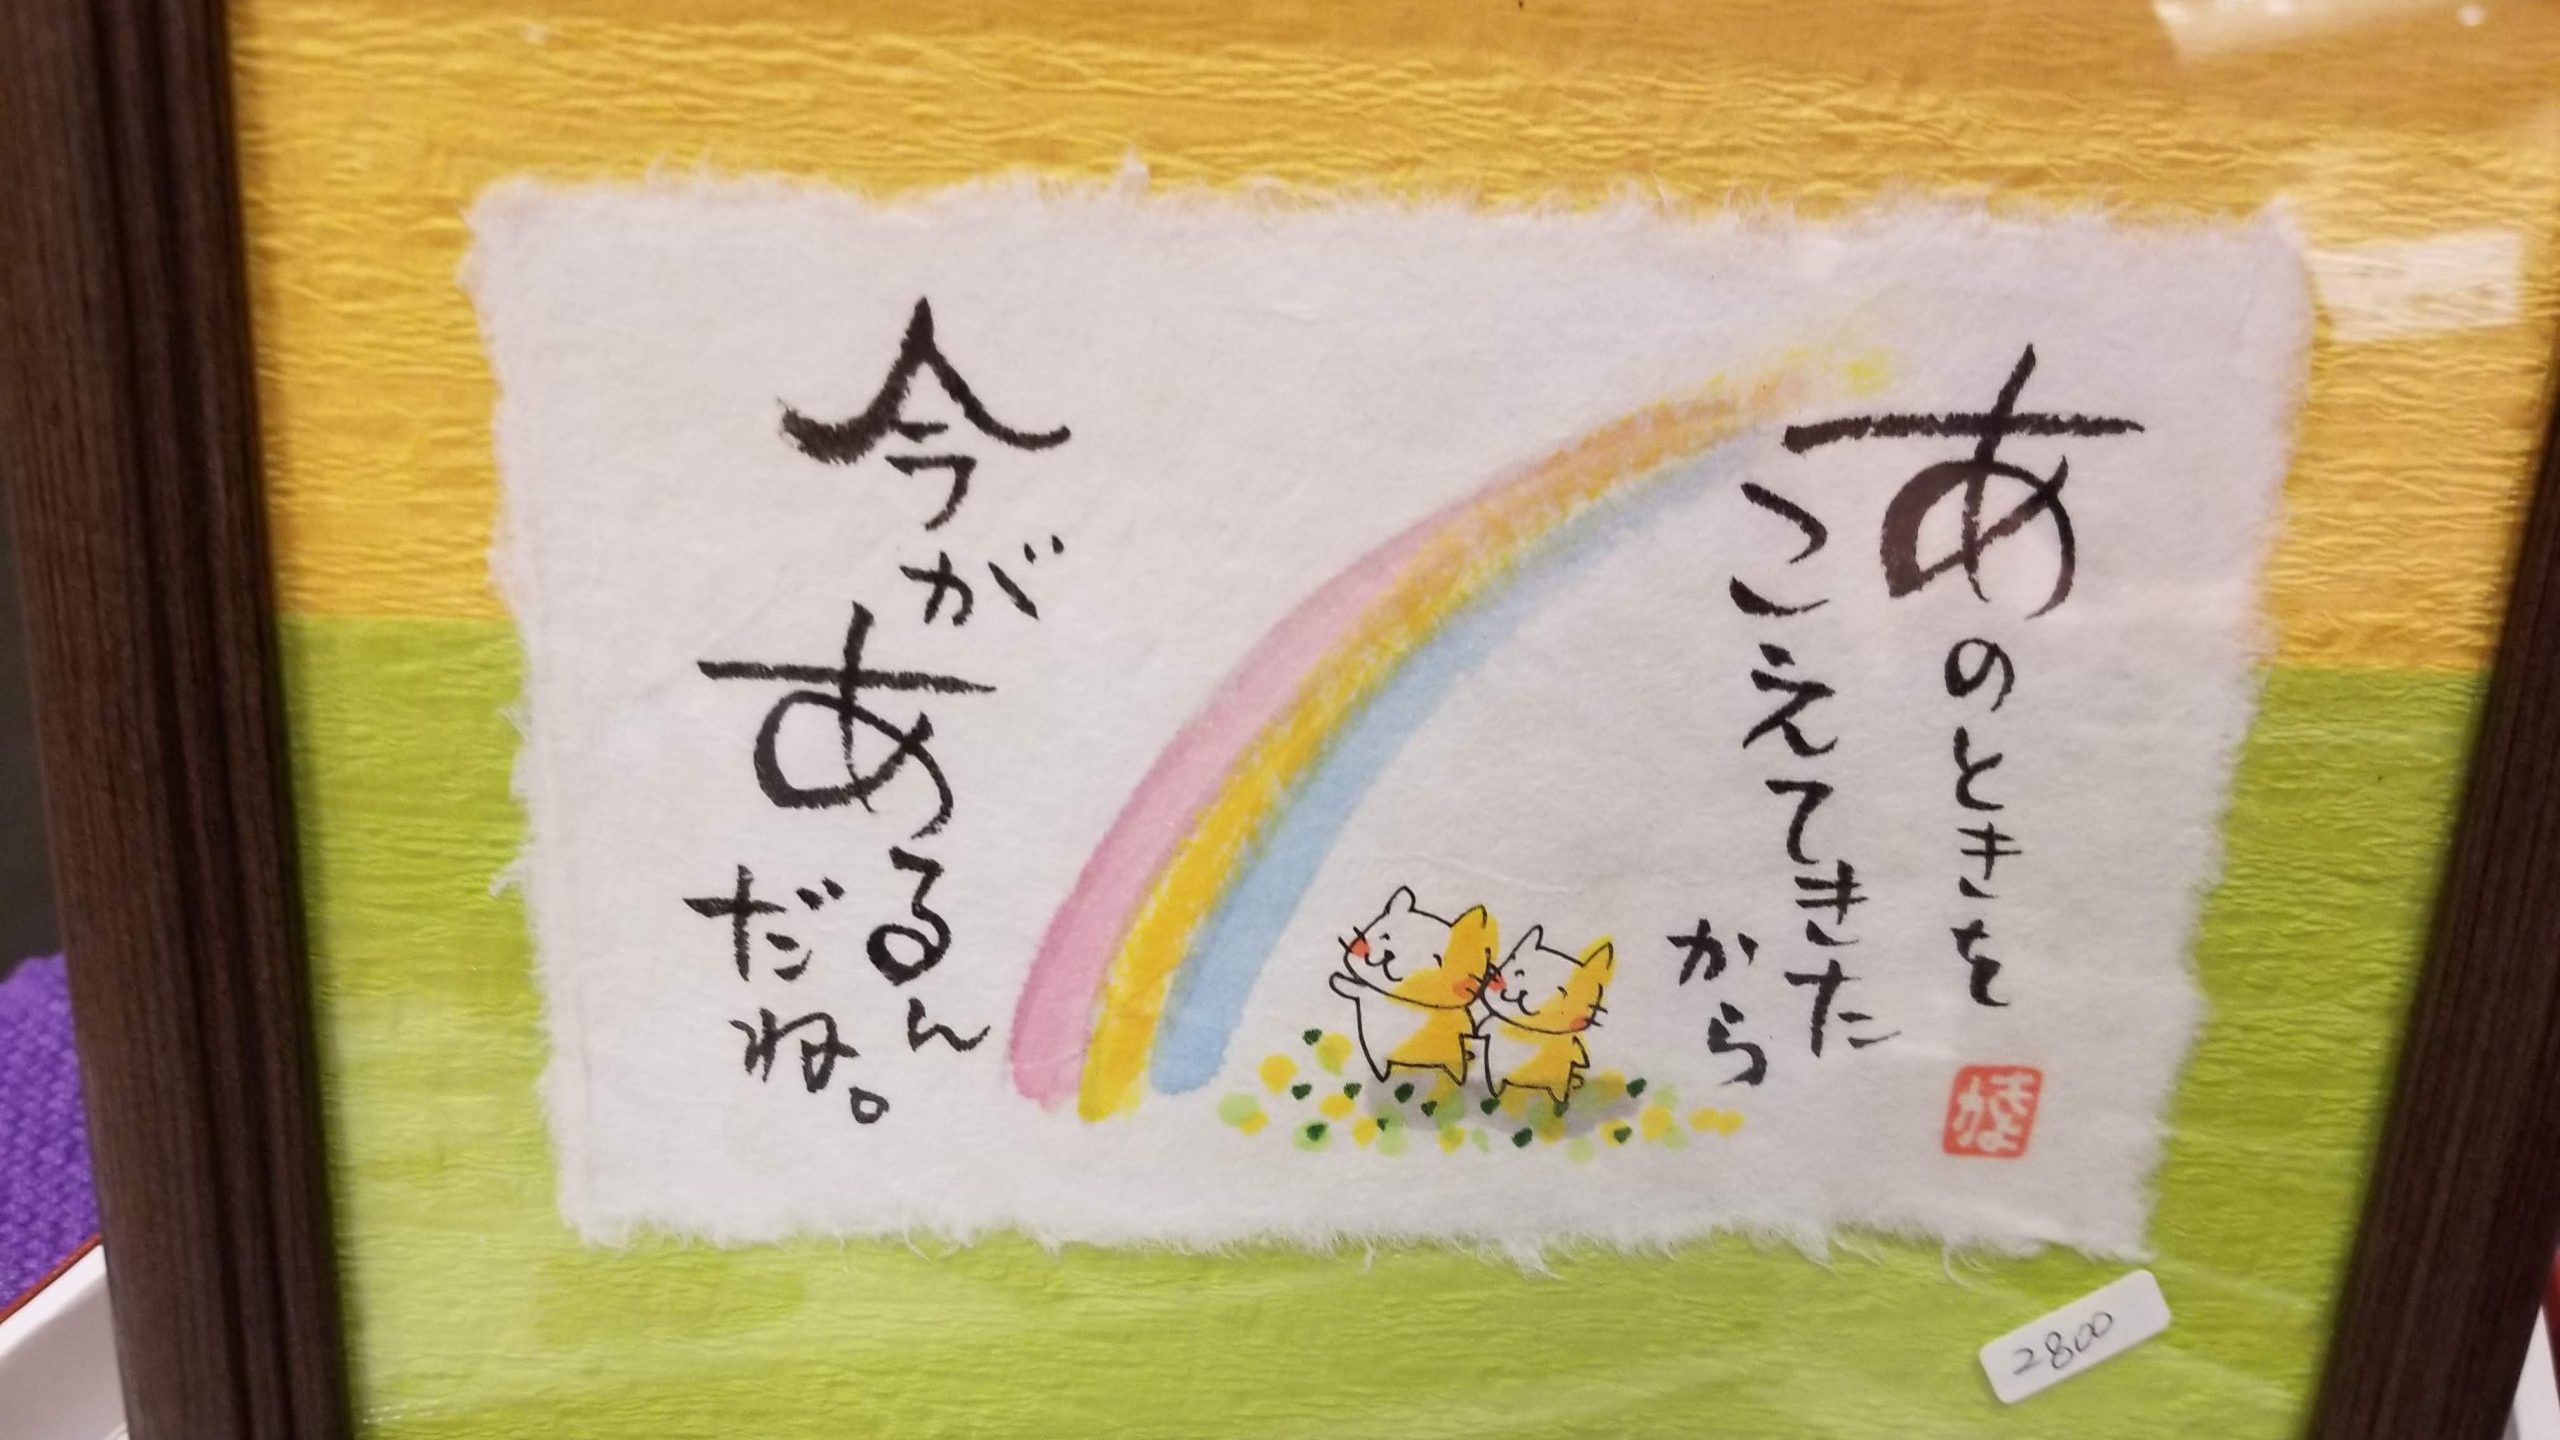 あのときを
こえてきた
から
今が
あるん
だね。
きよか
2800